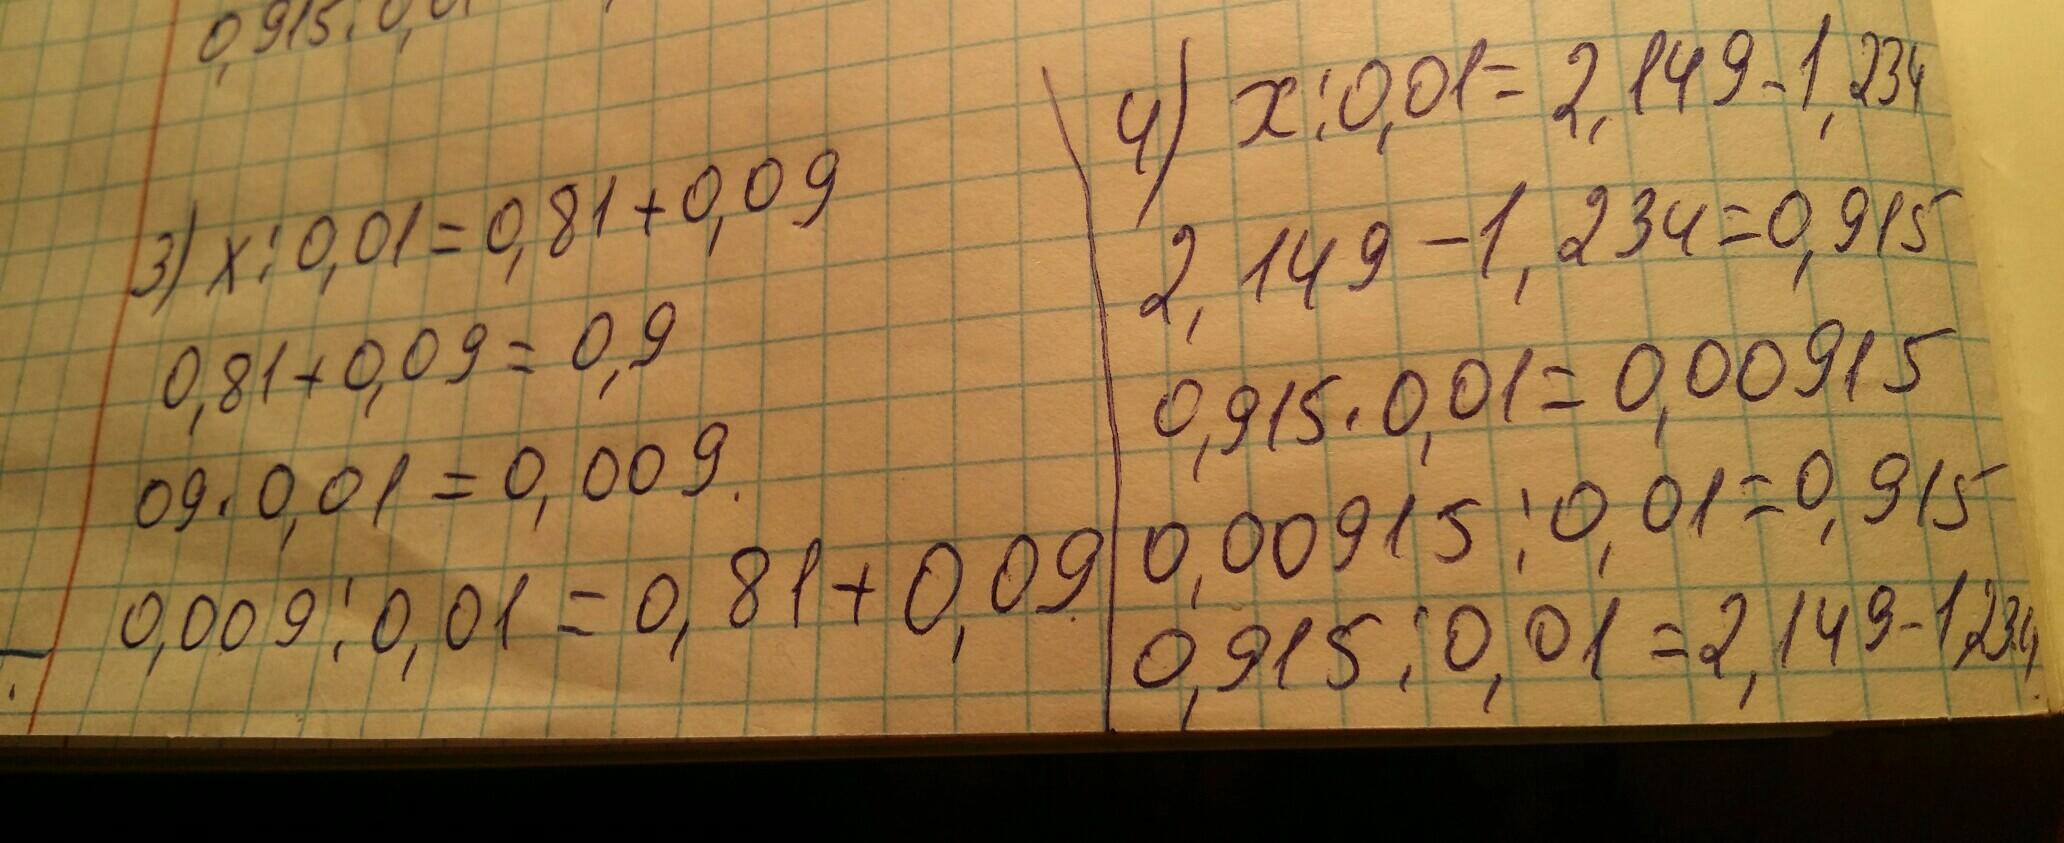 0,915:0,01
3) x:0,01=0,81+0,09
0,81+0,09=0,9
09·0,01=0,009.
0,009:0,01=0,81+0,09
4) x:0,01=2,149-1,234
2,149-1,234=0,915
0,915·0,01=0,00915
0,00915:0,01=0,915
0,915:0,01=2,149-1,234